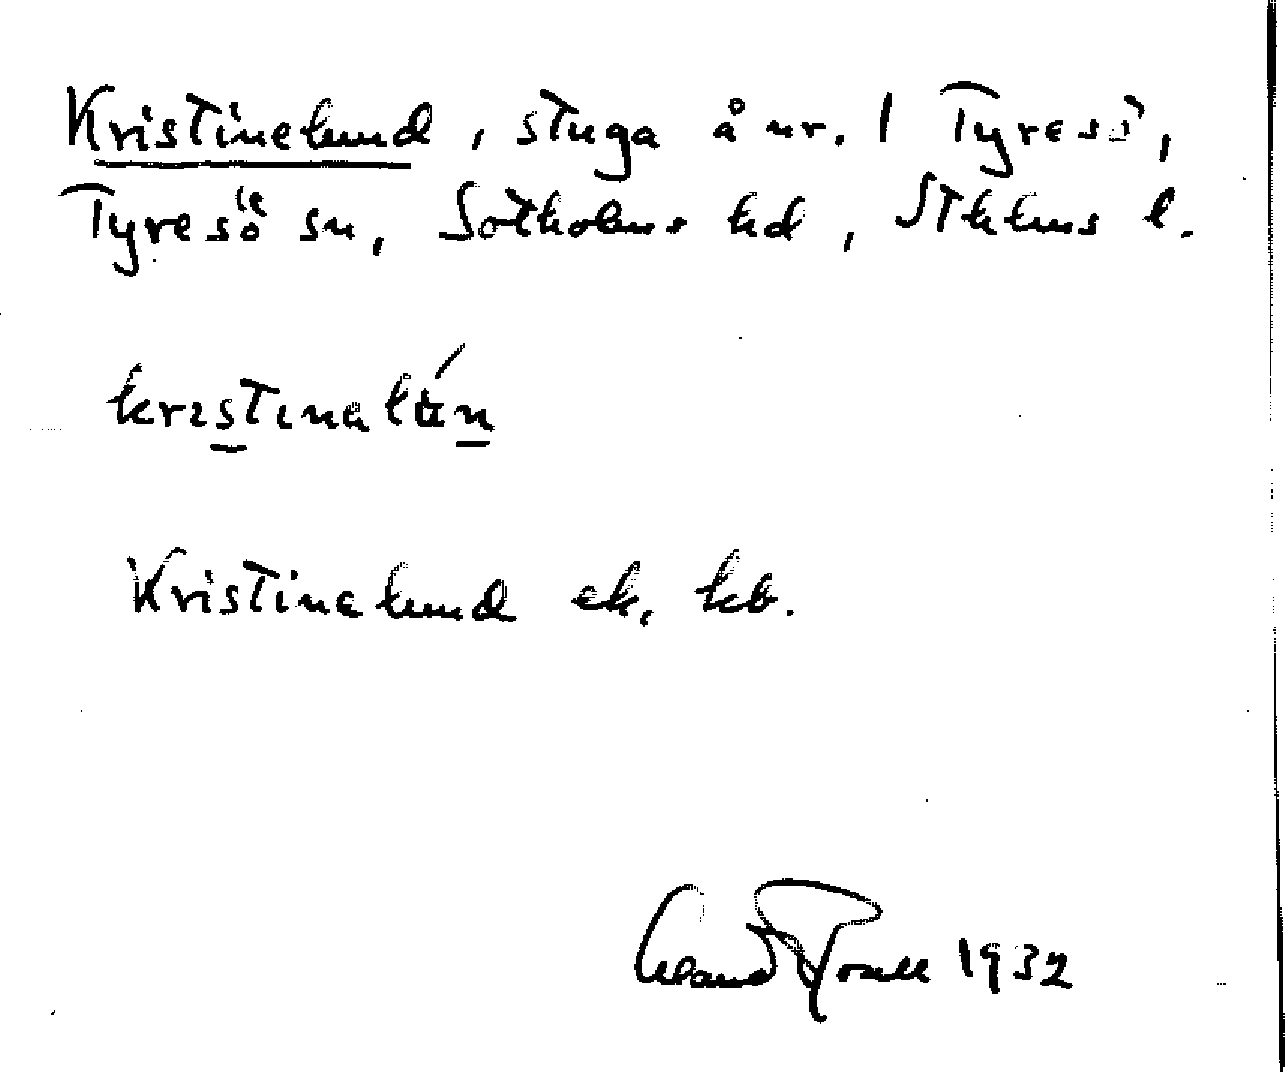 Kristinelund, stuga å nr. 1 Tyresö,
Tyresö sn, Sotholms hd, Sthlms l.
krɪstinalɯ́n
Kristinelund ek. kb.
1932